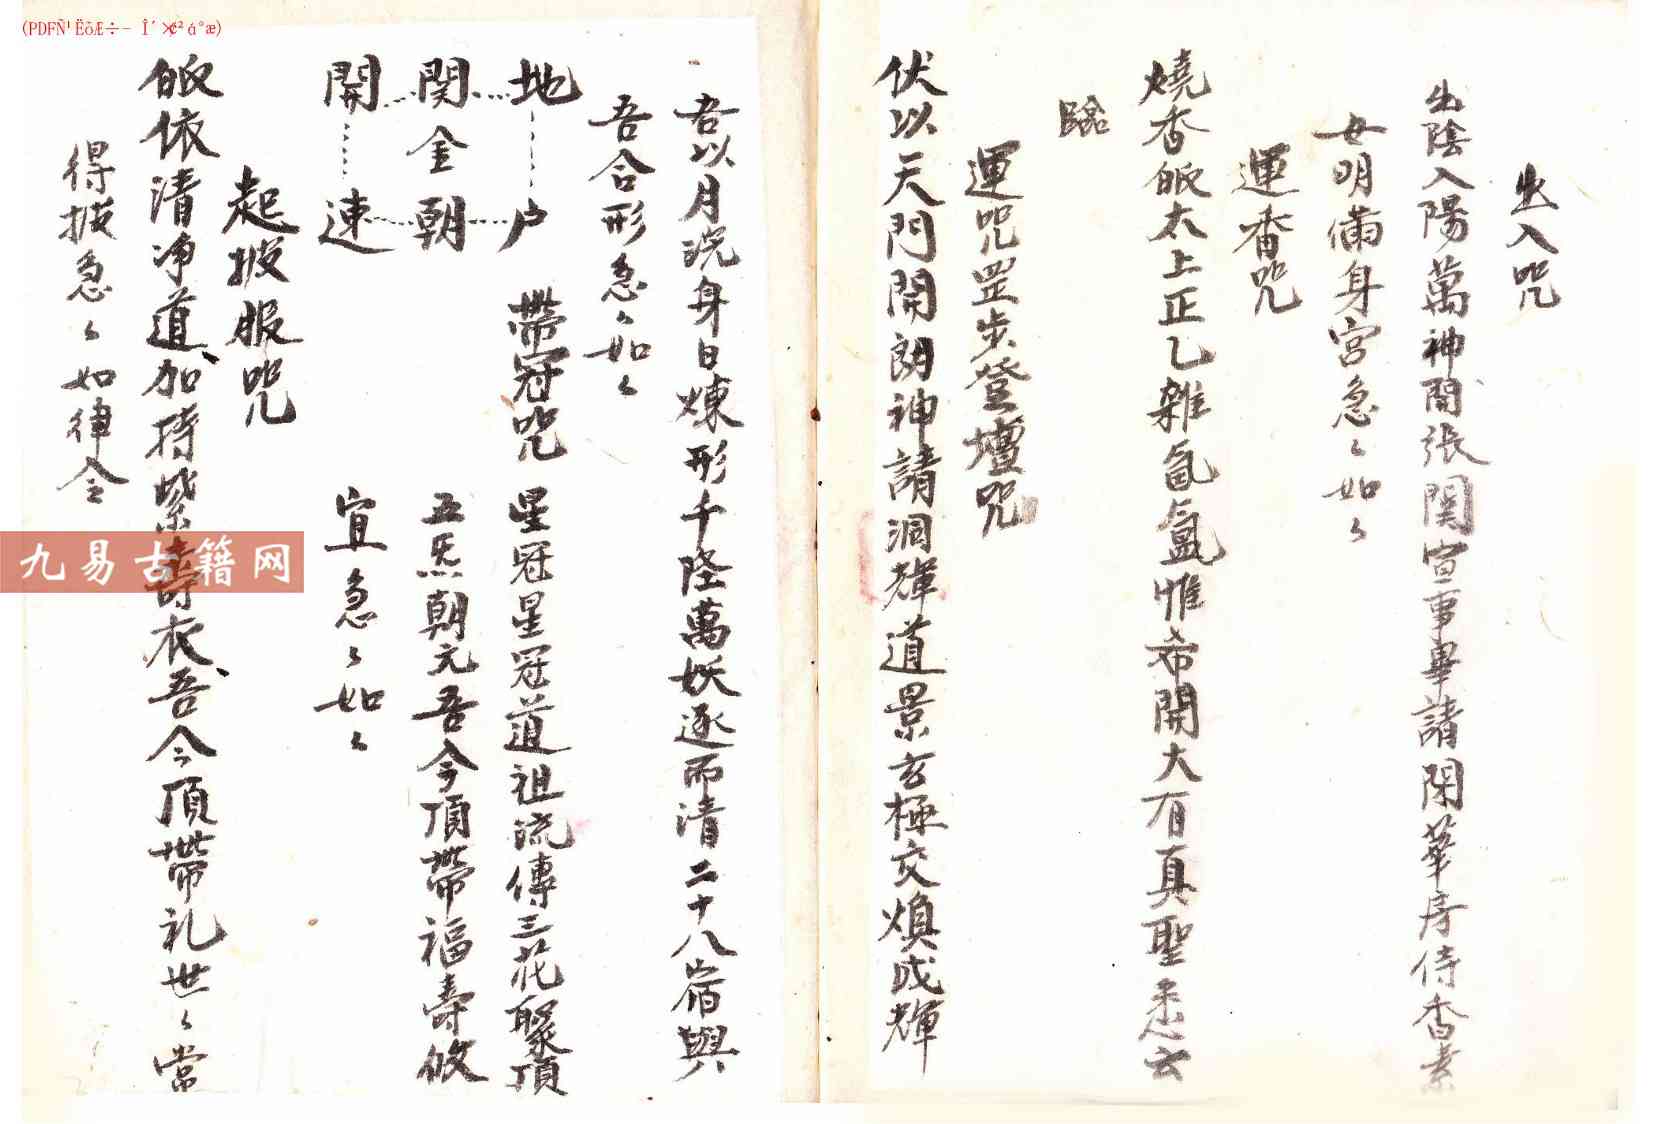 出入咒
出陰入陽萬神開張関宣事畢請閉華房侍香素
女明備身宮急〻如〻
運香咒
燒香皈太上正乙雜氤氳惟希開大有真聖悉云
臨
運咒罡步登壇咒
伏以天門開朗神請洞輝道景玄極交煥成輝
吾以月浣身日煉形千陸萬妖逐而清二十八宿與
吾合形急〻如〻
地戶
関金朝
開連
帶冠咒
星冠星冠道祖流傳三花聚頂
五炁朝元吾今頂帶福壽攸
宜急〻如〻
起披服咒
皈依清净道加持紫壽衣吾今頂帶礼世〻常
得披急〻如律令
九易古籍网